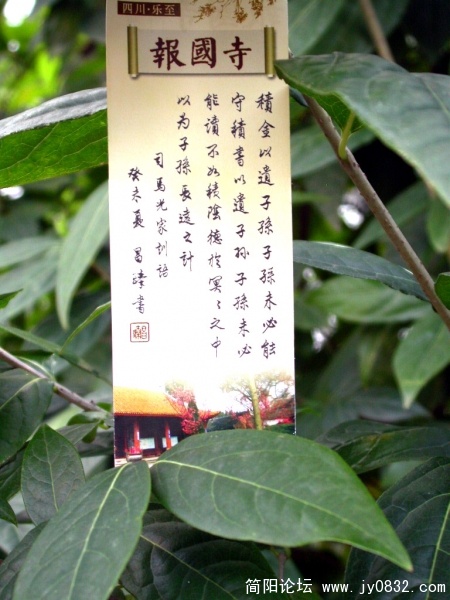 四川·乐至
報國寺
積金以遺子孫子孫未必能
守積書以遺子孙子孫未必
能讀不如積陰德於冥冥之中
以为子孫長遠之計
司馬光家訓語
癸未夏 昌臻書
简阳论坛 www.jy0832.com